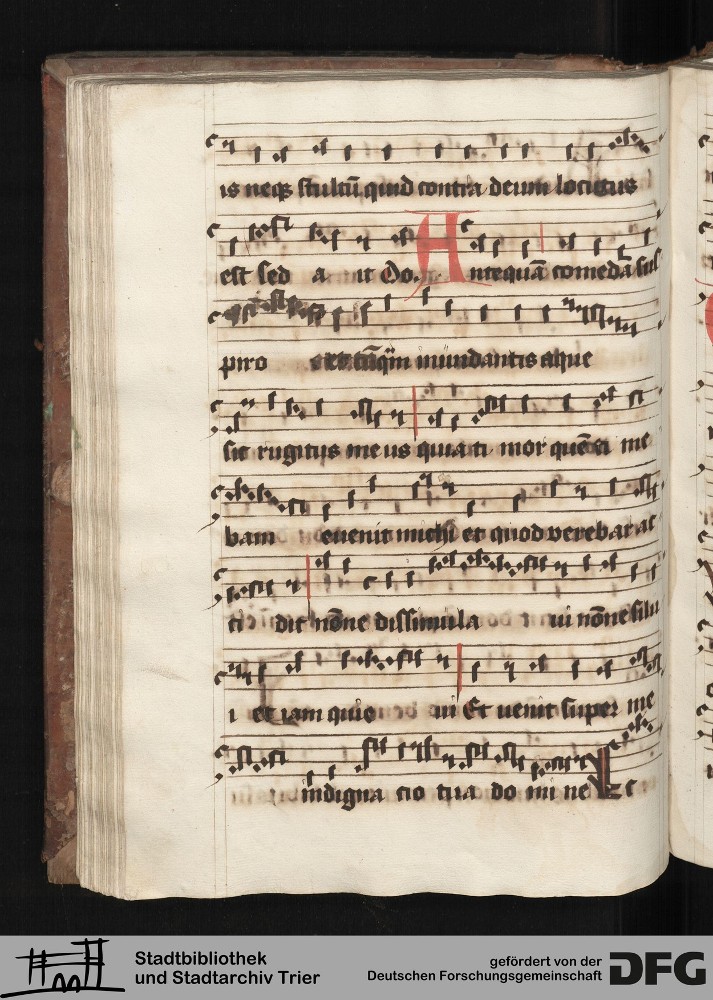 is neqꝫ stultū quid contra deum locutus
est Sed a it Do. Antequā comedā sus
piro et tāqm inundantis aque
sic rugitus meus quia ti mor quē ti me
bam euenit michi et quod verebar ac
ci dit nōne dissimula ui nōne silu
i et iam quie ui Et uenit super me
indigna cio tua do mi ne
Stadtbibliothek
und Stadtarchiv Trier
gefördert von der
Deutschen Forschungsgemeinschaft
DFG